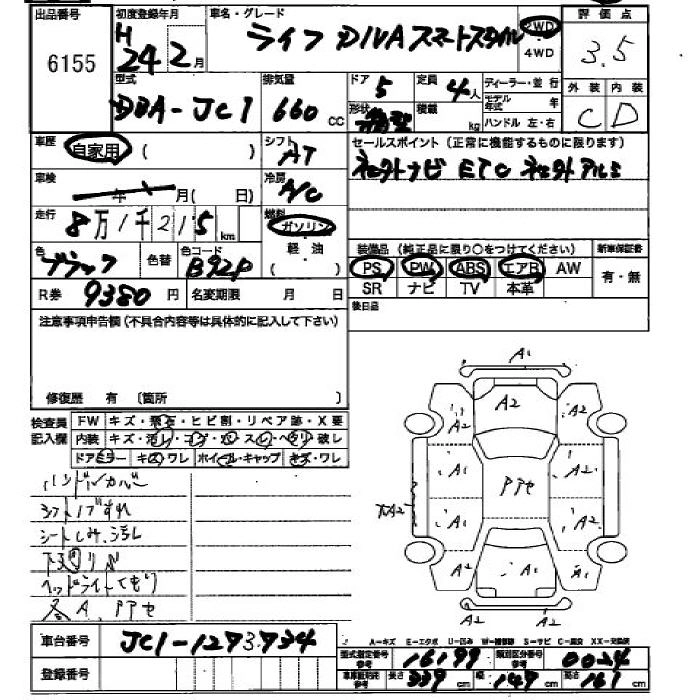 出品番号 初度登録年月 車名・グレード 評価点
6155 H 24 2月 ライフ DIVA スマートスタイル 2WD 4WD 3.5
型式 排気量 ドア 定員 ディーラー・並行 外装 内装
DBA-JC1 660 cc 5 4人 モデル年式 年 C D
形状 積載 kg ハンドル 左・右
車歴 自家用 ( ) シフト AT セールスポイント(正常に機能するものに限ります)
ネクストナビ ETC ネクストアルミ
車検 年 月( 日) 冷房 A/C
走行 8万1千215km 燃料 ガソリン
軽油
( )
色 ブラック 色替 色コード B92P
装備品(純正品に限り○をつけてください) 新車保証書
PS PW ABS エアB AW 有・無
SR ナビ TV 本革
R券 9380円 名変期限 月 日 後日品
注意事項申告欄(不具合内容等は具体的に記入して下さい)
修復歴 有 〔箇所 〕
検査員記入欄 FW キズ・飛石・ヒビ割・リペア跡・X要
内装 キズ・汚レ・コゲ・穴・スレ・ヘタリ・破レ
ドアミラー キズ・ワレ ホイール・キャップ キズ・ワレ
ハンドルカバー
シフトノブすれ
シートしみ、汚れ
下廻りサビ
ヘッドライトくもり
各A、PPセ
A1
A2
A2
A2
A1
A2
PPセ
A2
A1
A1
A2
A2
A1
A2
車台番号 JC1-1273734
登録番号
A-キズ E-エクボ U-凹み W-補修跡 S-サビ C-腐食 XX-交換済
型式指定番号 参考 16199 類別区分番号 参考 0024
車車証明用 参考 長さ 339cm 幅 147cm 高さ 161cm